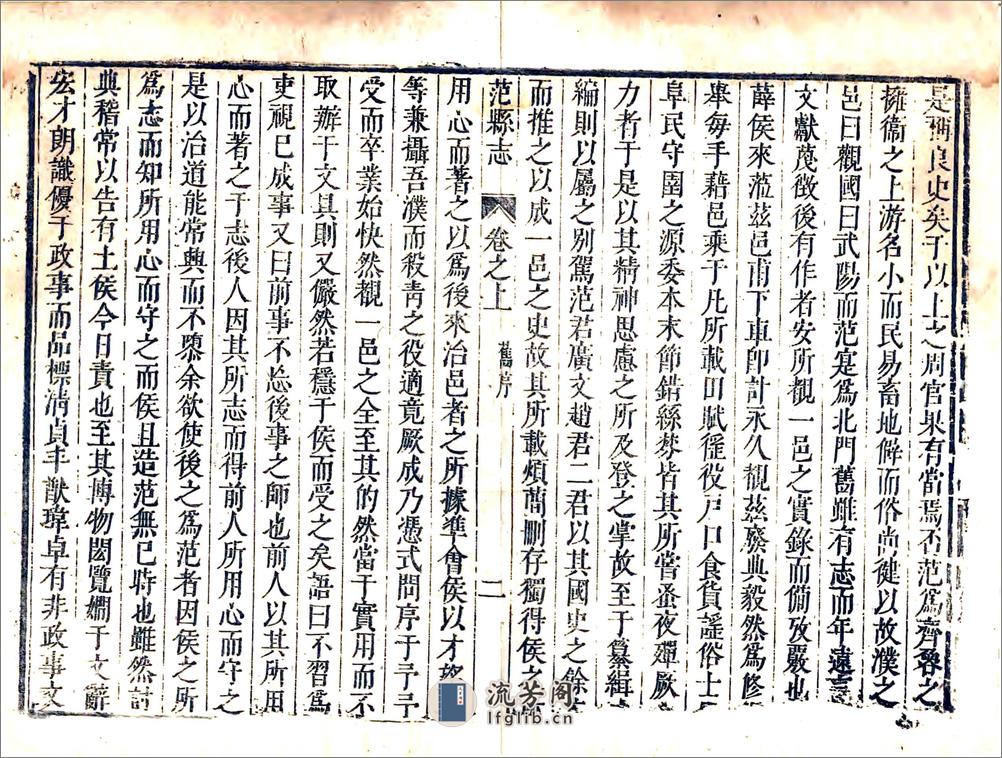 是稱良史矣予以上之周官果有當焉否范爲齊魯之
擁衞之上游名小而民易畜地僻而俗尚健以故濮之
邑曰觀國曰武陽而范寔爲北門舊雖有志而年遠
文獻蔑徵後有作者安所觀一邑之實錄而備攷覈也
薛侯來蒞茲邑甫下車卽計永久覩茲廢典毅然爲修
舉每手藉邑乘于凡所載田賦徭役戸口食貨謠俗士
阜民守圉之源委本末節錯絲棼皆其所嘗蚤夜殫厥
力者于是以其精神思慮之所及登之掌故至于纂緝
編則以屬之別駕范君廣文趙君二君以其國史之餘
而推之以成一邑之史故其所載煩簡删存獨得侯之
范縣志 卷之上 舊序 二
用心而著之以爲後來治邑者之所據準會侯以才
等兼攝吾濮而殺青之役適竟厥成乃憑式問序于予予
受而卒業始快然觀一邑之全至其的然當于實用而不
取辦于文具則又儼然若穩于侯而受之矣語曰不習爲
吏視已成事又曰前事不忘後事之師也前人以其所用
心而著之于志後人因其所志而得前人所用心而守之
是以治道能常興而不隳余欲使後之爲范者因侯之所
爲志而知所用心而守之而侯且造范無已時也雖然討
典稽常以告有土侯今日責也至其博物閎覽嫻于文辭
宏才朗識優于政事而品標清貞丰猷瑋卓有非政事文
流芳阁
lfglib.cn